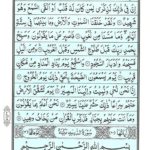 إِنَّ فِي ذَٰلِكَ لَذِكْرَىٰ لِمَن كَانَ لَهُ قَلْبٌ أَوْ أَلْقَى السَّمْعَ وَهُوَ
شَهِيدٌ وَلَقَدْ خَلَقْنَا السَّمَاوَاتِ وَالْأَرْضَ وَمَا بَيْنَهُمَا فِي سِتَّةِ
أَيَّامٍ وَمَا مَسَّنَا مِن لُّغُوبٍ فَاصْبِرْ عَلَىٰ مَا يَقُولُونَ وَسَبِّحْ
بِحَمْدِ رَبِّكَ قَبْلَ طُلُوعِ الشَّمْسِ وَقَبْلَ الْغُرُوبِ وَمِنَ اللَّيْلِ
فَسَبِّحْهُ وَأَدْبَارَ السُّجُودِ وَاسْتَمِعْ يَوْمَ يُنَادِ الْمُنَادِ مِن مَّكَانٍ
قَرِيبٍ يَوْمَ يَسْمَعُونَ الصَّيْحَةَ بِالْحَقِّ ذَٰلِكَ يَوْمُ الْخُرُوجِ إِنَّا
نَحْنُ نُحْيِي وَنُمِيتُ وَإِلَيْنَا الْمَصِيرُ يَوْمَ تَشَقَّقُ الْأَرْضُ عَنْهُمْ
سِرَاعًا ذَٰلِكَ حَشْرٌ عَلَيْنَا يَسِيرٌ نَّحْنُ أَعْلَمُ بِمَا يَقُولُونَ وَمَا
أَنتَ عَلَيْهِم بِجَبَّارٍ فَذَكِّرْ بِالْقُرْآنِ مَن يَخَافُ وَعِيدِ
بِسْمِ اللَّهِ الرَّحْمَٰنِ الرَّحِيمِ